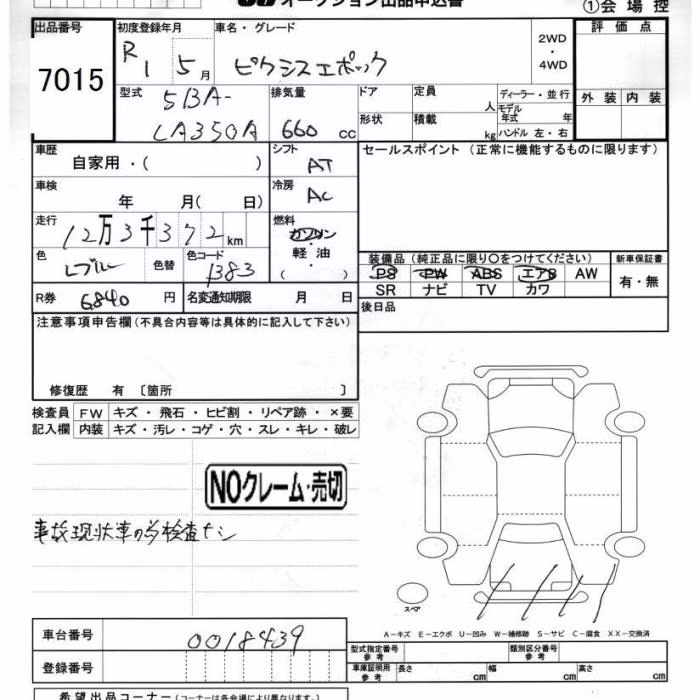 オークション出品申込書
①会場控
出品番号
7015
初度登録年月
R1 5月
車名・グレード
ピクシスエポック
2WD
・
4WD
評価点
外装 内装
型式
5BA-
LA350A
排気量
660 cc
ドア
形状
定員
人
積載
kg
ディーラー・並行
モデル年式 年
ハンドル 左・右
車歴
自家用・( )
シフト
AT
セールスポイント(正常に機能するものに限ります)
車検
年 月( 日)
冷房
AC
走行
12万3千372km
燃料
ガソリン
軽・油
( )
色
Lブルー
色替
色コード
B83
装備品(純正品に限り〇をつけてください)
PS PW ABS エアB AW
SR ナビ TV カワ
新車保証書
有・無
R券
6840 円
名変通知期限 月 日
後日品
注意事項申告欄(不具合内容等は具体的に記入して下さい)
修復歴 有 〔箇所 〕
検査員 FW キズ・飛石・ヒビ割・リペア跡・×要
記入欄 内装 キズ・汚レ・コゲ・穴・スレ・キレ・破レ
NOクレーム・売切
事故現状車の為検査ナシ
スペア
A-キズ E-エクボ U-凹み W-補修跡 S-サビ C-腐食 XX-交換済
車台番号
0018439
登録番号
型式指定番号 参考
類別区分番号 参考
車庫証明用 参考
長さ cm
幅 cm
高さ cm
希望出品コーナー(コーナーは各会場により異なります。)